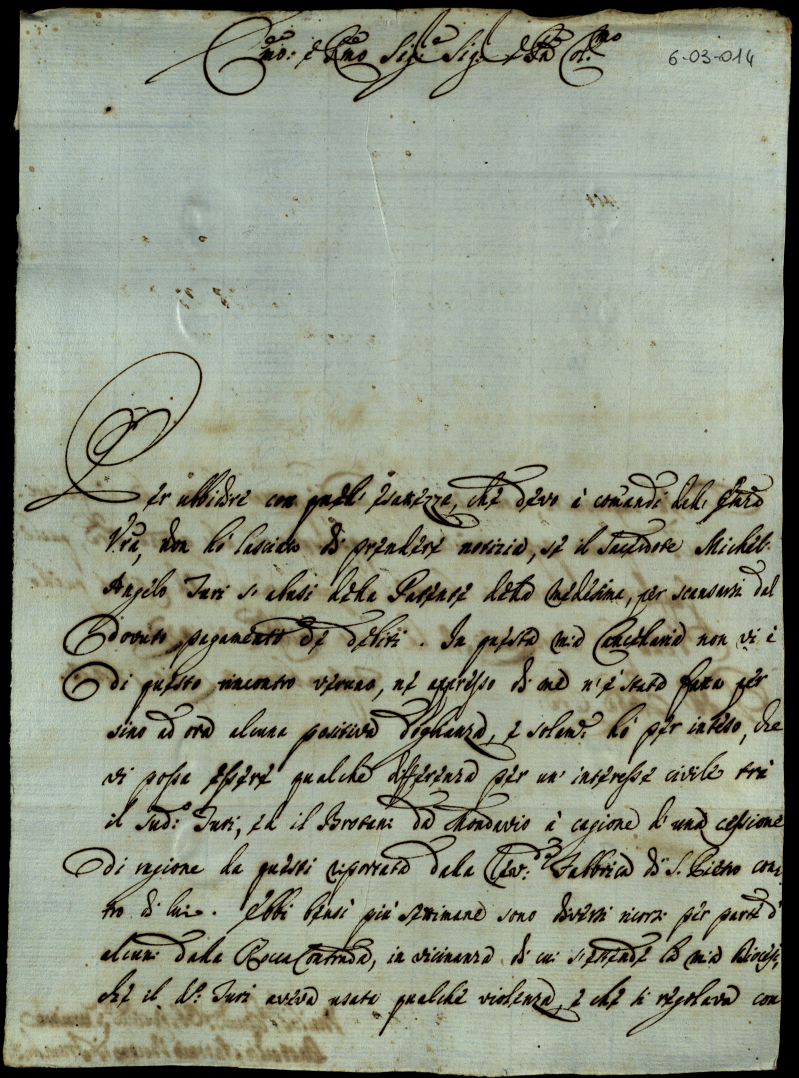 Emo: e Rmo Sig:re Sig: e Pne Col:mo
6-03-014
Per ubbidire con quell' esatezza, che devo à comandi dell' Emza
Vra, non hò lasciato di prendere notizia, se il Sacerdote Michel-
Angelo Turi si abusi della Patente della medesima, per scansarsi dal
dovuto pagamento de debiti. In questa mia Cancellaria non vi è
di questo rincontro veruno, nè appresso di me n'è stata fatta per
sino ad ora alcuna positiva doglianza, e solam:e hò per inteso, che
vi possa essere qualche differenza per un' interesse civile trà
il Sud:o Turi, ed il Brotani da Mondavio à cagione d' una cessione
di ragione da questi riportata dalla Rev:da Fabbrica di S. Pietro con-
tro di lui. Ebbi bensì più settimane sono diversi ricorsi per parte d'
alcuni dalla Rocca Contrada, in vicinanza di cui s'estende la mia Diocesi,
che il d:o Turi aveva usate qualche violenza, e che si regolava con